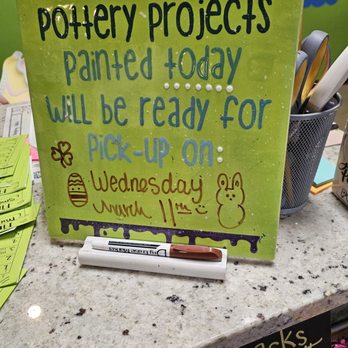 pottery projects
painted today
will be ready for
pick-up on:
Wednesday
March 11th